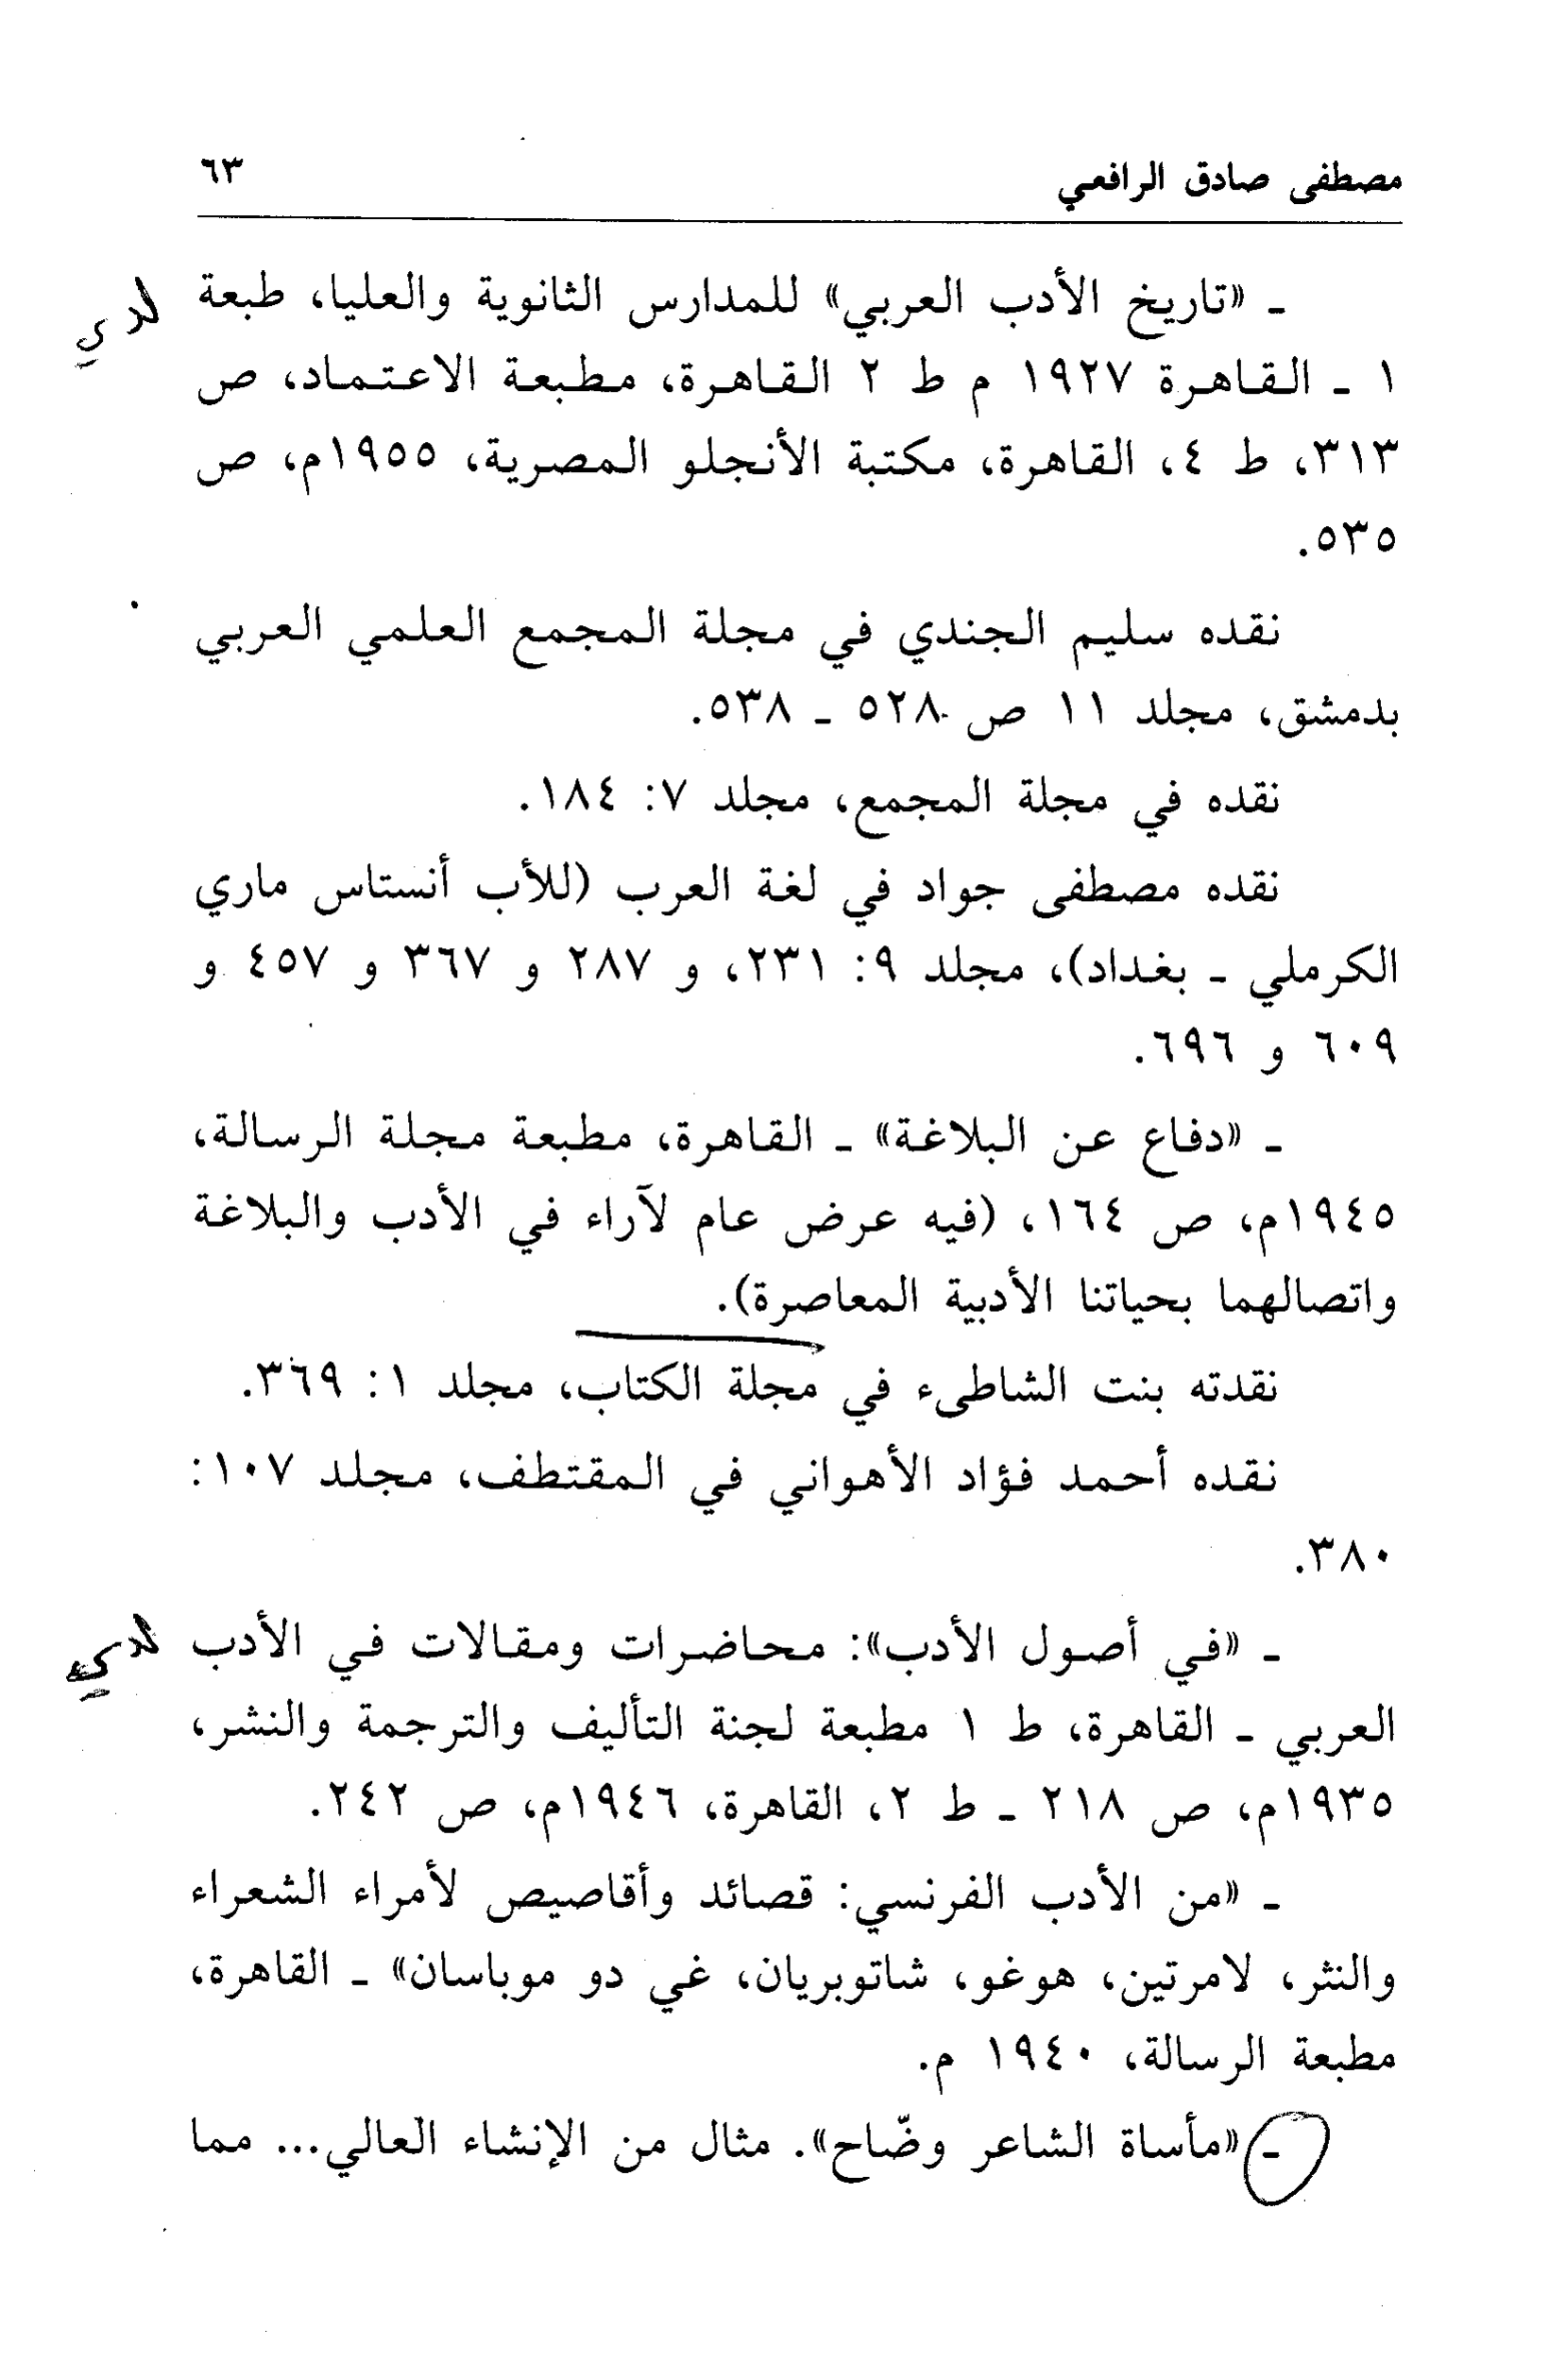 مصطفى صادق الرافعي ٦٣
ـ «تاريخ الأدب العربي» للمدارس الثانوية والعليا، طبعة
١ ـ القاهرة ١٩٢٧ م ط ٢ القاهرة، مطبعة الاعتماد، ص
٣١٣، ط ٤، القاهرة، مكتبة الأنجلو المصرية، ١٩٥٥م، ص
٥٣٥.
نقده سليم الجندي في مجلة المجمع العلمي العربي
بدمشق، مجلد ١١ ص ٥٢٨ ـ ٥٣٨.
نقده في مجلة المجمع، مجلد ٧: ١٨٤.
نقده مصطفى جواد في لغة العرب (للأب أنستاس ماري
الكرملي ـ بغداد)، مجلد ٩: ٢٣١، و ٢٨٧ و ٣٦٧ و ٤٥٧ و
٦٠٩ و ٦٩٦.
ـ «دفاع عن البلاغة» ـ القاهرة، مطبعة مجلة الرسالة،
١٩٤٥م، ص ١٦٤، (فيه عرض عام لآراء في الأدب والبلاغة
واتصالهما بحياتنا الأدبية المعاصرة).
نقدته بنت الشاطىء في مجلة الكتاب، مجلد ١: ٣٦٩.
نقده أحمد فؤاد الأهواني في المقتطف، مجلد ١٠٧:
٣٨٠.
ـ «في أصول الأدب»: محاضرات ومقالات في الأدب
العربي ـ القاهرة، ط ١ مطبعة لجنة التأليف والترجمة والنشر،
١٩٣٥م، ص ٢١٨ ـ ط ٢، القاهرة، ١٩٤٦م، ص ٢٤٢.
ـ «من الأدب الفرنسي: قصائد وأقاصيص لأمراء الشعراء
والنثر، لامرتين، هوغو، شاتوبريان، غي دو موباسان» ـ القاهرة،
مطبعة الرسالة، ١٩٤٠ م.
ـ «مأساة الشاعر وضّاح». مثال من الإنشاء العالي... مما